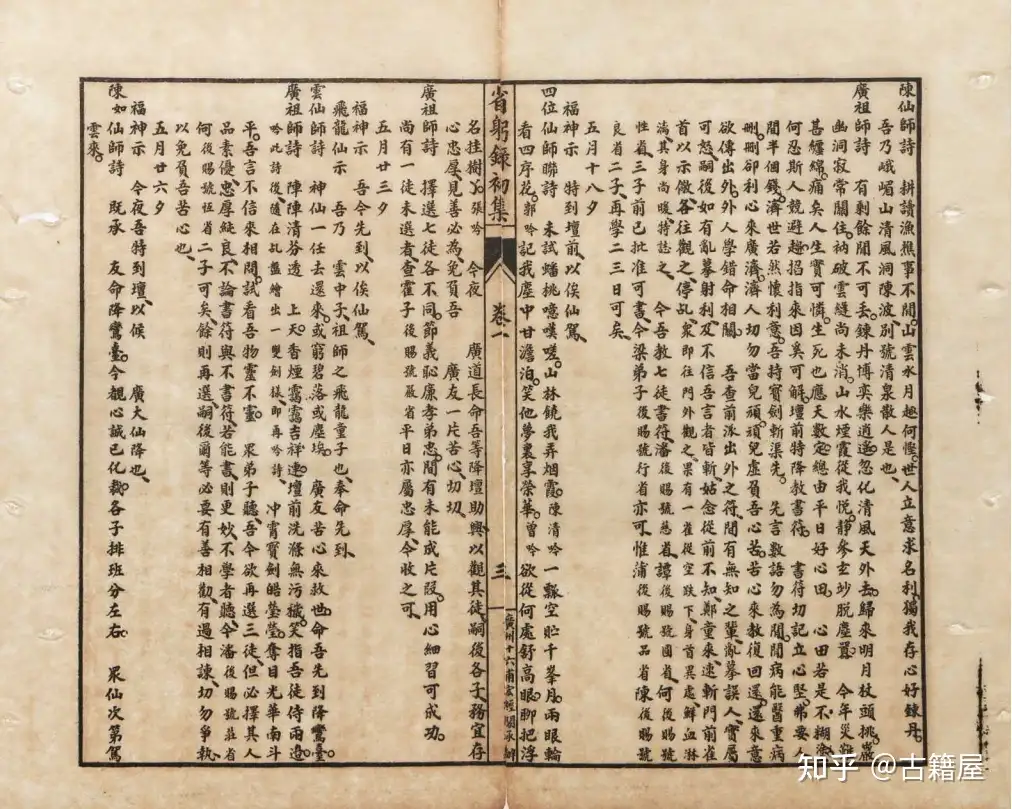 陳仙師詩　耕讀漁樵事不閒。山雲水月趣何慳。世人立意求名利、獨我存心好鍊丹。
吾乃峨嵋山清風洞陳波別號清泉散人是也、
廣祖師詩　有剩餘閒不可丟。鍊丹博奕樂逍遙。忽化清風天外去。歸來明月杖頭挑。巖
幽洞寂常關住。衲破雲縫尚未消。山水煙霞從我悅。靜參玄妙脫塵囂　今年災難
甚纏綿。痛矣人生實可憐生死也應天數定。總由平日好心田　心田若是不糊塗
何忍斯人競避趨。招指來因奚可解。壇前特降教書符。　書符切記立心堅。弗要人
間半個錢。濟世若然懷利意。吾持寶劍斬渠先　先言數語勿為閒。閒病能醫重病
刪。刪卻利心來廣濟。濟人切勿當兒頑。頑兒虛負吾心苦。苦心來教復回還。還來意
欲傳出外。外人學錯命相關。　吾查前派出外之符、間有無知之輩、亂摹誤人、實屬
可怒、嗣後如有亂摹射利、及不信吾言者皆斬、姑念從前不知、鄭重來速斬門前雀
首以示儆、各往觀之、停乩、衆即往門外觀之、果有一雀從空跌下、身首異處、鮮血淋
漓其身尚暖、特誌之、　今吾教七徒書符、潘後賜號慈省、譚後賜號國省、何後賜號
性省、三子前已批准可書、今梁弟子後賜號行省亦可、惟蒲後賜號品省陳後賜號
良省二子、再學二三日可矣、
五月十八夕
福神示　特到壇前、以俟仙駕、
四位仙師聯詩　未試蟠桃噫嘆嗟。山林饒我弄烟霞。陳清吟一瓢空貯千峯月。兩眼輪
看四序花。郭吟記我塵中甘澹泊。笑他夢裏享榮華。曾吟欲從何處舒高眼。聊把浮
省躬錄初集
卷一
三
廣州十六甫
名挂樹丫。張吟　今夜　廣道長命吾等降壇助興、以觀其徒、嗣後各子、務宜存
心忠厚、見善必為、免負吾　廣友一片苦心、切切、
廣祖師詩　擇選七徒各不同。節義恥廉孝弟忠。間有未能成片段。用心細習可成功。
尚有一徒未選者、查霍子後賜號嚴省平日亦屬忠厚、今收之可、
五月廿三夕
福神示　吾今先到、以俟仙駕、
飛龍仙示　吾乃　雲中子、祖師之飛龍童子也、奉命先到、
雲仙師詩　神仙一任去還來。或窮碧落或塵埃。　廣友苦心來救世。命吾先到降鸞臺。
廣祖師詩　陣陣清芬透　上天。香煙靄靄吉祥連。壇前洗滌無污穢。笑指吾徒侍兩邊。
吟此詩後、隨在乩盤繪出一雙劍樣、即再吟詩、　冲霄寶劍皓瑩瑩。奪目光華南斗
平。吾言不信來相問。試看吾物靈不靈。　眾弟子聽、吾今欲再選三徒、但必擇其人
品素優、忠厚純良、不論書符與不書符、若能書、則更妙、不學者聽、今潘後賜號莊省
何後賜號恆省二子可矣、餘則再選、嗣後爾等必要有善相勸、有過相諫、切勿爭執、
以免負吾苦心也、
五月廿六夕
福神示　今夜吾特到壇、以候　廣大仙降也、
陳如仙師詩　既承　友命降鸞臺。今覩心誠已化裁。各子排班分左右。　眾仙次第駕
雲來。
知乎 @古籍屋